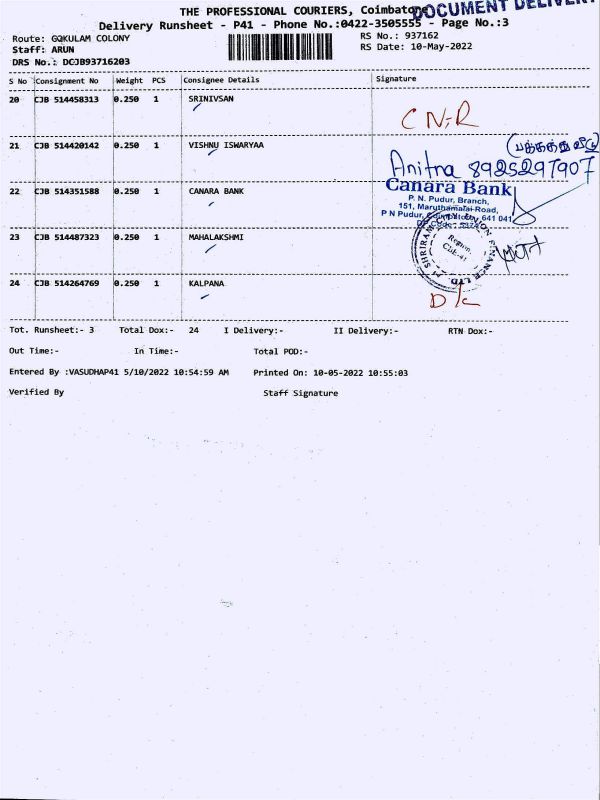 THE PROFESSIONAL COURIERS, Coimbatore
DOCUMENT DELIVERY
Delivery Runsheet - P41 - Phone No.:0422-3505555 - Page No.:3
Route: GOKULAM COLONY
RS No.: 937162
Staff: ARUN
RS Date: 10-May-2022
DRS No.: DCJB93716203
S No Consignment No Weight PCS Consignee Details Signature
20 CJB 514458313 0.250 1 SRINIVSAN
CN-R
21 CJB 514420142 0.250 1 VISHNU ISWARYAA
(பக்கத்து வீடு)
Anitha 8925297907
22 CJB 514351588 0.250 1 CANARA BANK
Canara Bank
P. N. Pudur, Branch,
151, Maruthamalai Road,
P N Pudur, Coimbatore - 641 041
23 CJB 514487323 0.250 1 MAHALAKSHMI
SHRIRAM CITY UNION FINANCE LTD.
Region,
CBE-41
24 CJB 514264769 0.250 1 KALPANA
D/c
Tot. Runsheet:- 3 Total Dox:- 24 I Delivery:- II Delivery:- RTN Dox:-
Out Time:- In Time:- Total POD:-
Entered By :VASUDHAP41 5/10/2022 10:54:59 AM Printed On: 10-05-2022 10:55:03
Verified By Staff Signature